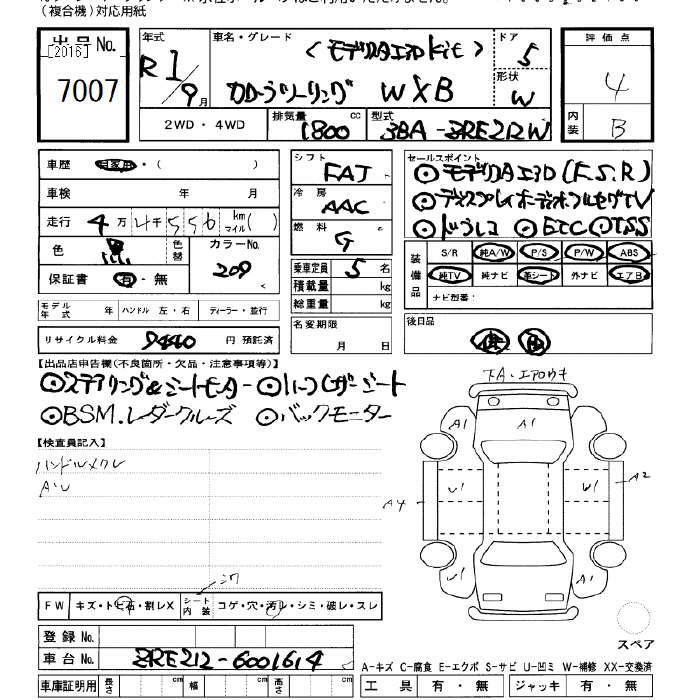 （複合機）対応用紙
出品 No.
[2016]
7007
年式 R1/9月
車名・グレード （モデリスタエアロKit）
カローラツーリング W×B
ドア 5
形状 W
評価点 4
内装 B
2WD・4WD
排気量 1800 cc
型式 3BA-ZRE212W
車歴 自家用・（ ）
車検 年 月
走行 4万4千556 km マイル( )
色 黒 色替
カラーNo. 209
保証書 有・無
モデル年式 年 ハンドル 左・右 ディーラー・並行
リサイクル料金 9440 円 預託済
シフト FAT
冷房 AAC
燃料 G
乗車定員 5 名
積載量 kg
総重量 kg
名変期限
月 日
セールスポイント
◎モデリスタエアロ(F.S.R)
◎ディスプレイオーディオフルセグTV
◎ドラレコ ◎ETC ◎TSS
装備品
S/R 純A/W P/S P/W ABS
純TV 純ナビ 革シート 外ナビ エアB
ナビ型番：
後日品
【出品店申告欄(不良箇所・欠品・注意事項等)】
◎ステアリング&シートヒーター ◎ハーフレザーシート
◎BSM.レーダークルーズ ◎バックモニター
【検査員記入】
ハンドルメクレ
AU
シワ
FW キズ・トビ石・割レX シート内装 コゲ・穴・汚レ・シミ・破レ・スレ
登録 No.
車台 No. ZRE212-6001614
車庫証明用 長さ cm 幅 cm 高さ cm
下A・エアロウキ
A1
A1
U1
W1
A4
A2
U1
A1
スペア
A-キズ C-腐食 E-エクボ S-サビ U-凹ミ W-補修 XX-交換済
工具 有・無 ジャッキ 有・無